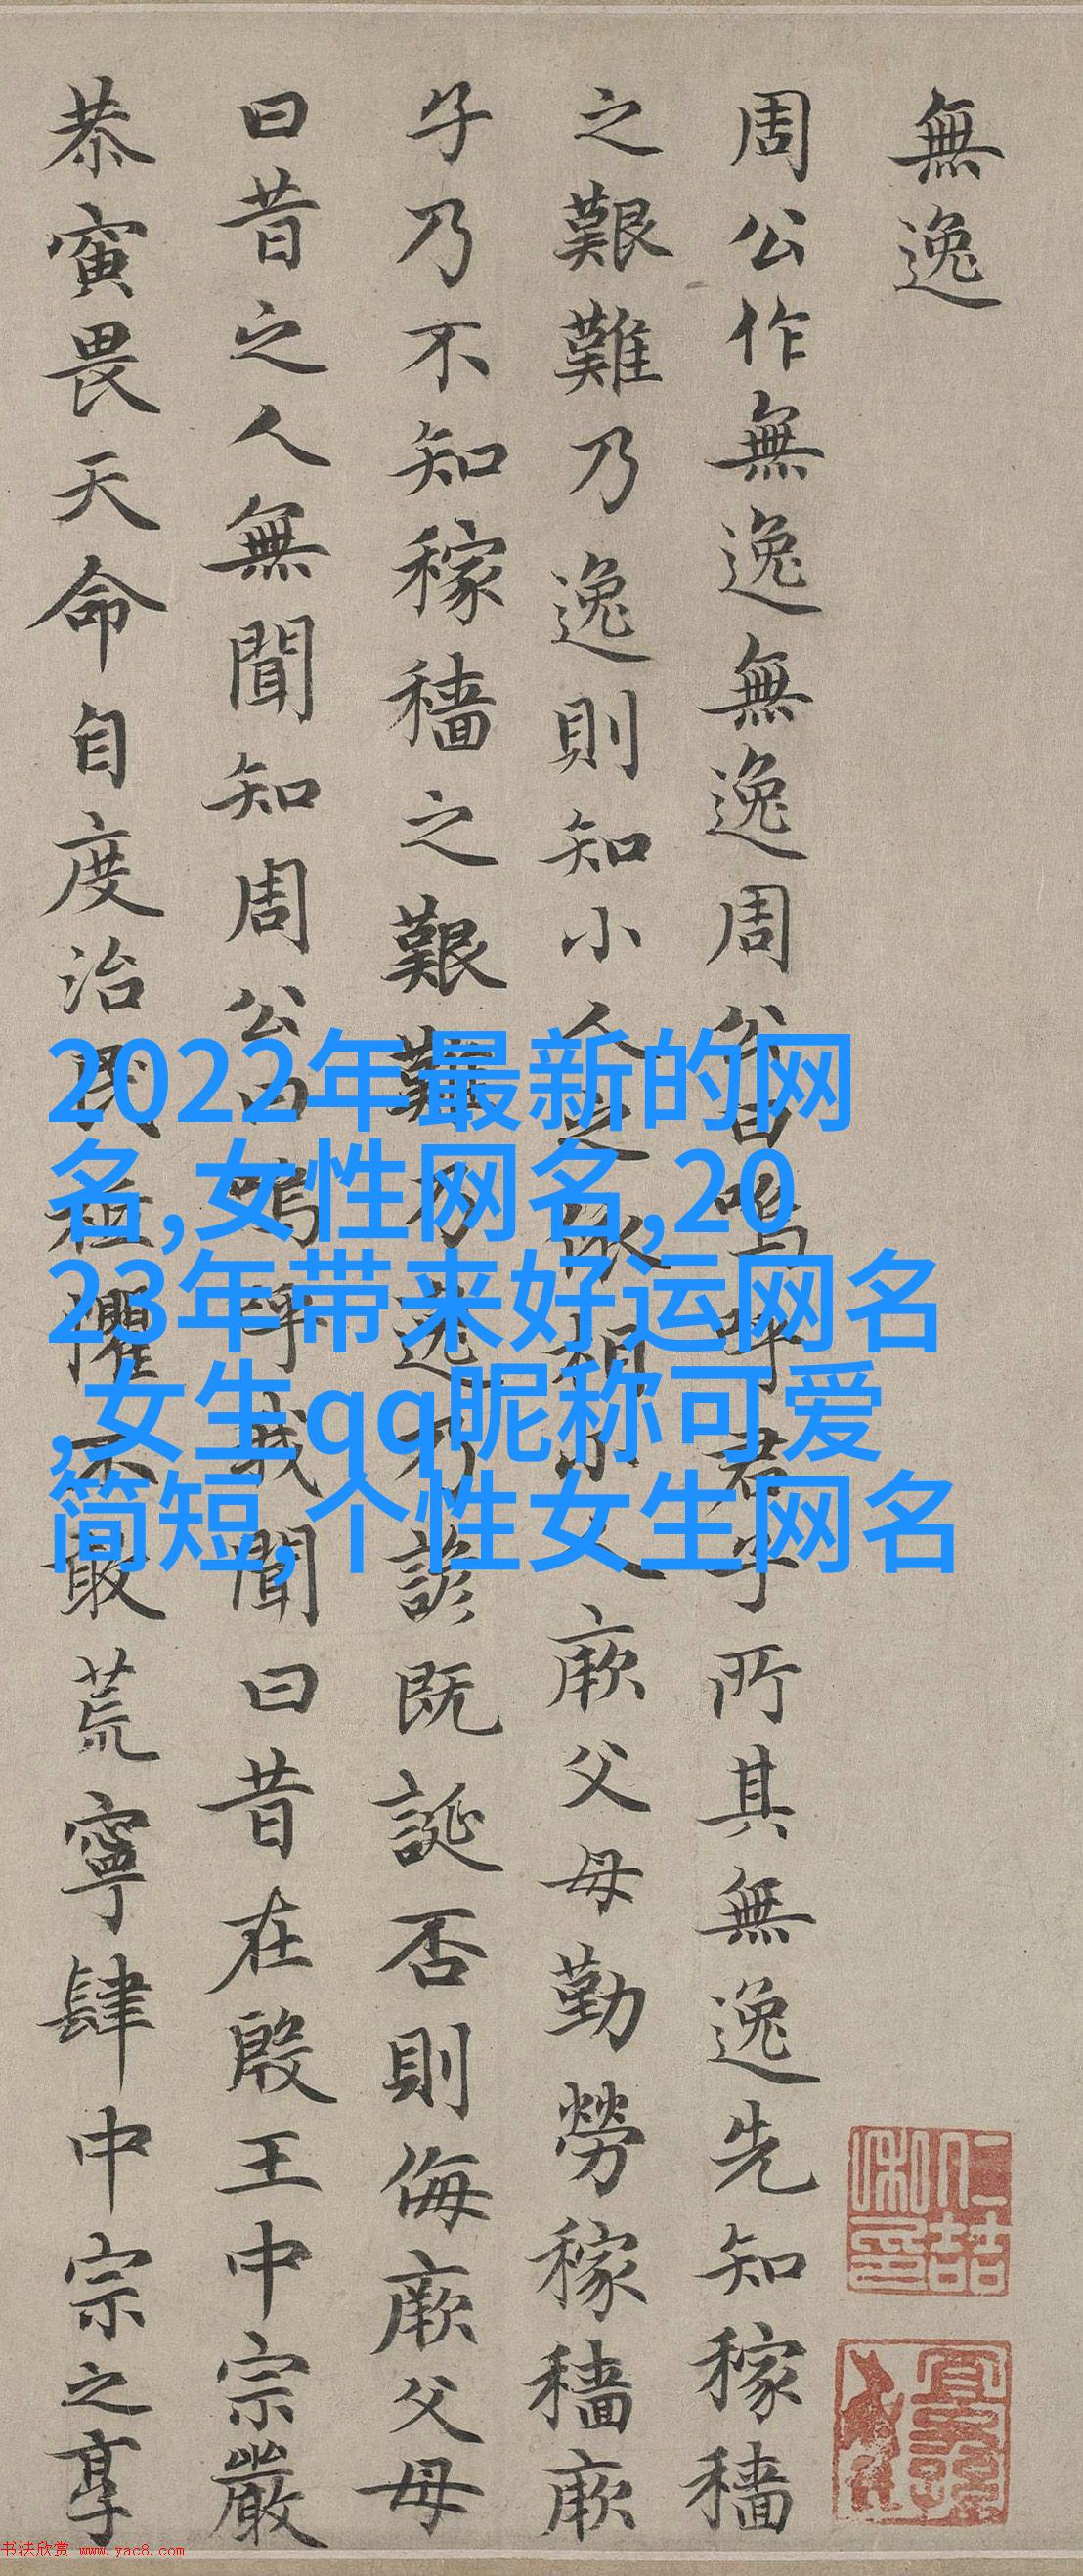 無逸
周公作無逸無逸周公曰嗚呼君子所其無逸先知稼穡
之艱難乃逸則知小人之依相小人厥父母勤勞稼穡厥
子乃不知稼穡之艱難乃逸乃諺既誕否則侮厥父母
曰昔之人無聞知周公曰嗚呼我聞曰昔在殷王中宗嚴
恭寅畏天命自度治民祗懼不敢荒寧肆中宗之享
2022年最新的网
名,女性网名,20
23年带来好运网名
,女生qq昵称可爱
简短,个性女生网名
书法欣赏 www.yac8.com